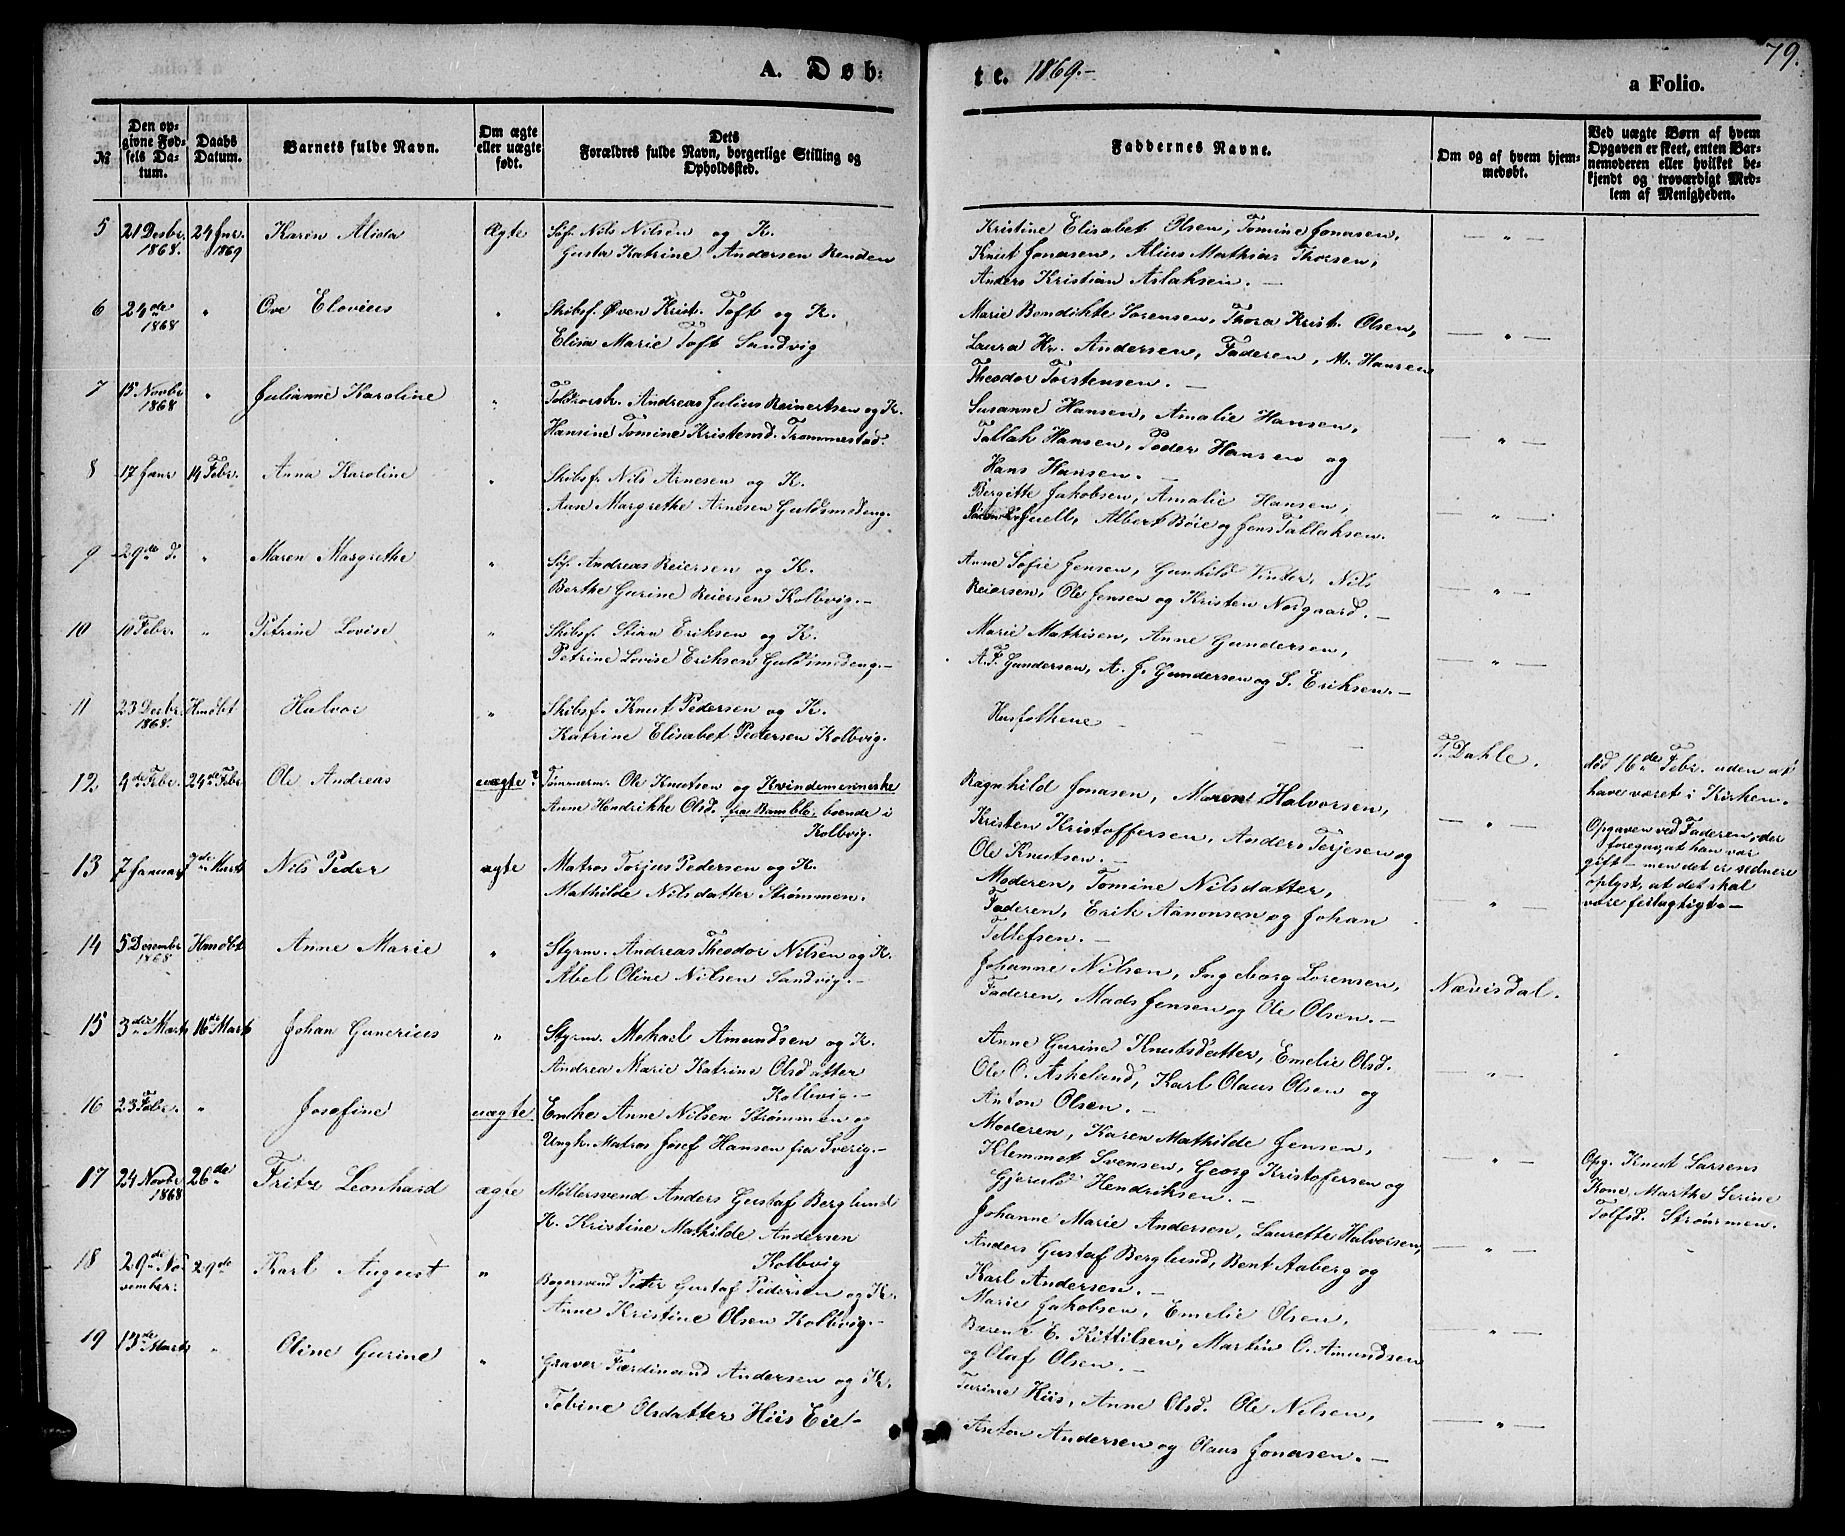 A. Døb-
te. 1869.-
79.
a Folio.
№
Den op-
givne Fød-
sels Da-
tum.
Daabs
Datum.
Barnets fulde Navn.
Om ægte
eller uægte
født.
Dets
Forældres fulde Navn, borgerlige Stilling og
Opholdssted.
Faddernes Navne.
Om og af hvem hjem-
medøbt.
Ved uægte Børn af hvem
Opgaven er skeet, enten Bar-
nemoderen eller hvilket be-
kjendt og troværdigt Med-
lem af Menigheden.
5 21 Desbr. 24 Jnr. Karen Alida Ægte Søf. Nils Nilsen og K.
1868. 1869 Gusta Katrine Andersen Renden
Kristine Elisabet Olsen, Tomine Jonasen, — „ —
Knut Jonasen, Alius Mathias Thorsen,
Anders Kristian Aslaksen. —
6 24de „ Ove Elovius „ Skibsf. Øven Krist. Toft og K.
1868 Elisa Marie Toft Sandvig
Marie Bendikte Sørensen, Thora Krist. Olsen,
Laura Kr. Andersen, Faderen, M. Hansen — „ —
Theodor Torstensen. —
7 15 Novbr „ Julianne Karoline „ Toldorsk. Andreas Julius Reinertsen og K.
1868 Hansine Tomine Kristensd. Trommestad.
Susanne Hansen, Amalie Hansen,
Tallak Hansen, Peder Hansen og — „ —
Hans Hansen. —
8 17 Janr 14 Febr. Anna Karoline „ Skibsf. Nils Arnesen og K.
Ane Margrethe Arnesen Guldsmedeng.
Bergitte Jakobsen, Amalie Hansen,
Juell, Albert Bøie og Jens Tallaksen. — „ —
9 29de d. „ Maren Margrethe „ Søf. Andreas Reiersen og K.
Berthe Gurine Reiersen Kolbvig. —
Anne Sofie Jensen, Gunhild Vinter, Nils
Reiersen, Ole Jensen og Kristen Norgaard. — — „ —
10 10 Febr. „ Petrine Lovise „ Skibsf. Stian Eriksen og K.
Petrine Lovise Eriksen Guldsmedeng. —
Marie Mathisen, Anne Gundersen,
A. F. Gundersen, A. J. Gundersen og S. Eriksen. — — „ —
11 23 Desbr. Hmdbt Halvor „ Skibsf. Knut Pedersen og K.
1868. Katrine Elisabet Pedersen Kolbvig.
Husfolkene —
T. Dahle. død 16de Febr. uden at
have været i Kirken.
12 4de Febr. 24de Febr Ole Andreas uægte? Tømmerm. Ole Knutsen og Kvindemenneske
Anne Hendrikke Olsd. fra Bamble, boende i
Kolbvig.
Ragnhild Jonasen, Maren Halvorsen,
Kristen Kristoffersen, Anders Terjesen og — „ —
Ole Knutsen. —
Opgaven ved Faderen, der
foregav, at han var
gift — men det er sednere
oplyst, at det skal
være feilagtigt. —
13 7 Januar 7de Marts Nils Peder ægte Matros Torjus Pedersen og K.
Mathilde Nilsdatter Strømmen.
Moderen, Tomine Nilsdatter,
Faderen, Erik Aanonsen og Johan — „ —
Tellefsen. —
14 5 Desember Hmdbt Anne Marie „ Styrm. Andreas Theodor Nilsen og K.
1868 Abel Oline Nilsen Sandvig. —
Johanne Nilsen, Ingeborg Lorensen,
Faderen, Mads Jensen og Ole Olsen. — Nævisdal.
15 3die Marts 16de Marts Johan Gunerius „ Styrm. Mekael Amundsen og K.
Andrea Marie Katrine Olsdatter
Kolbvig. —
Anne Gurine Knutsdatter, Emelie Olsd.
Ole O. Askeland, Karl Olaus Olsen og — „ —
Anton Olsen. —
16 23 Febr. „ Josefine uægte Enke Anne Nilsen Strømmen og
Ungk. Matros Josef Hansen fra Sverig. —
Moderen, Karen Mathilde Jensen,
Klemmet Svensen, Georg Kristofersen og — „ —
Gjeruld Hendriksen. —
Opg. Knut Larsens
Kone, Marthe Serine
Tolfsd. Strømmen.
17 24 Novbr 26de Fritz Leonhard ægte Møllersvend Anders Gustaf Berglund
1868 K. Kristine Mathilde Andersen
Kolbvig
Johanne Marie Andersen, Laurette Halvorsen,
Anders Gustaf Berglund, Bent Aaberg og — „ —
Karl Andersen. —
18 29de No- 29de Karl August „ Bagersvend Peter Gustaf Pedersen og K.
vember. Anne Kristine Olsen Kolbvig. —
Marie Jakobsen, Emelie Olsen,
Barent E. Kittilsen, Martin O. Amundsen — „ —
og Olaf Olsen. —
19 13de Marts „ Oline Gurine „ Graver Færdinand Andersen og K.
Tobine Olsdatter Hiis Eie —
Turine Hiis, Anne Olsd. Ole Nilsen,
Anton Andersen og Olaus Jonasen. — — „ —